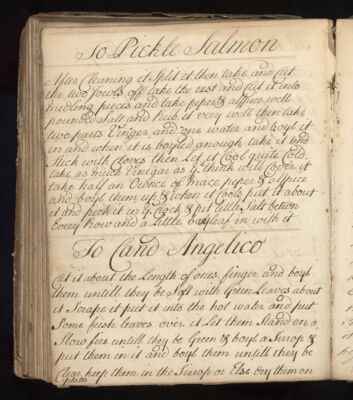 To Pickle Salmon
After Cleaning it Split it then take and Cut
the two Jowls off take the rest and Cut it into
midling pieces and take peper & allspice well
pounded Salt and Rub it very well then take
two parts Vinger and one water and boyle it
in and when it is boyled anough take it and
Stick with cloves then Let it Cool quite Cold
take as much Vinegar as y think will Cover it
take half an Ounce of mace peper & allspice
and boyle them up & when it Cools put it about
it and peck it in y Crock & put little Salt between
Every Row and a little bayleaf in with it
To Cand Angelico
Cut it about the Length of ones finger and boyle
them untill they be Soft with Green Leaves about
it Scrape it put it into the hot water and put
Some fresh leaves over it Let them Stand on a
Slow fire untill they be Green & boyle a Sirrop &
put them in it and boyle them untill they be
Clear keep them in the Sirrop or Else dry them on
plates